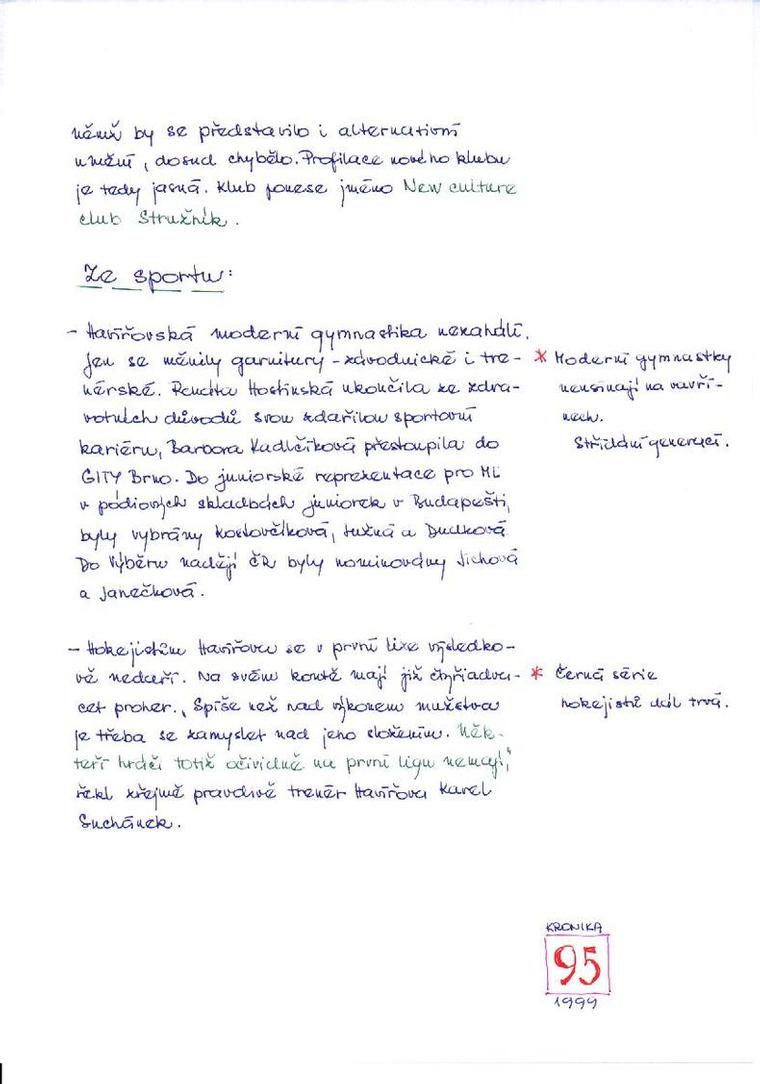 němž by se představilo i alternativní
umění, dosud chybělo. Profilace nového klubu
je tedy jasná. Klub ponese jméno New culture
club Stružník.
Ze sportu:
- Havířovská moderní gymnastika nezahálí.
Jen se měnily garnitury - závodnické i tre-
nérské. Renata Hostinská ukončila ze zdra-
votních důvodů svou zdařilou sportovní
kariéru, Barbora Kudlčíková přestoupila do
GITY Brno. Do juniorské reprezentace pro ME
v pódiových skladbách juniorek v Budapešti,
byly vybrány Koslovčíková, Lužná a Dudková
Do výběru nadějí ČR byly nominovány Jichová
a Janečková.
* Moderní gymnastky
neusínají na vavří-
nech.
Střídání generací.
- Hokejistům Havířova se v první lize výsledko-
vě nedaří. Na svém kontě mají již čtyřiadva-
cet proher. „Spíše než nad výkonem mužstva
je třeba se zamyslet nad jeho složením. Něk-
teří hráči totiž očividně na první ligu nemají,"
řekl zřejmě pravdivě trenér Havířova Karel
Suchánek.
* Černá série
hokejistů dál trvá.
KRONIKA
95
1999